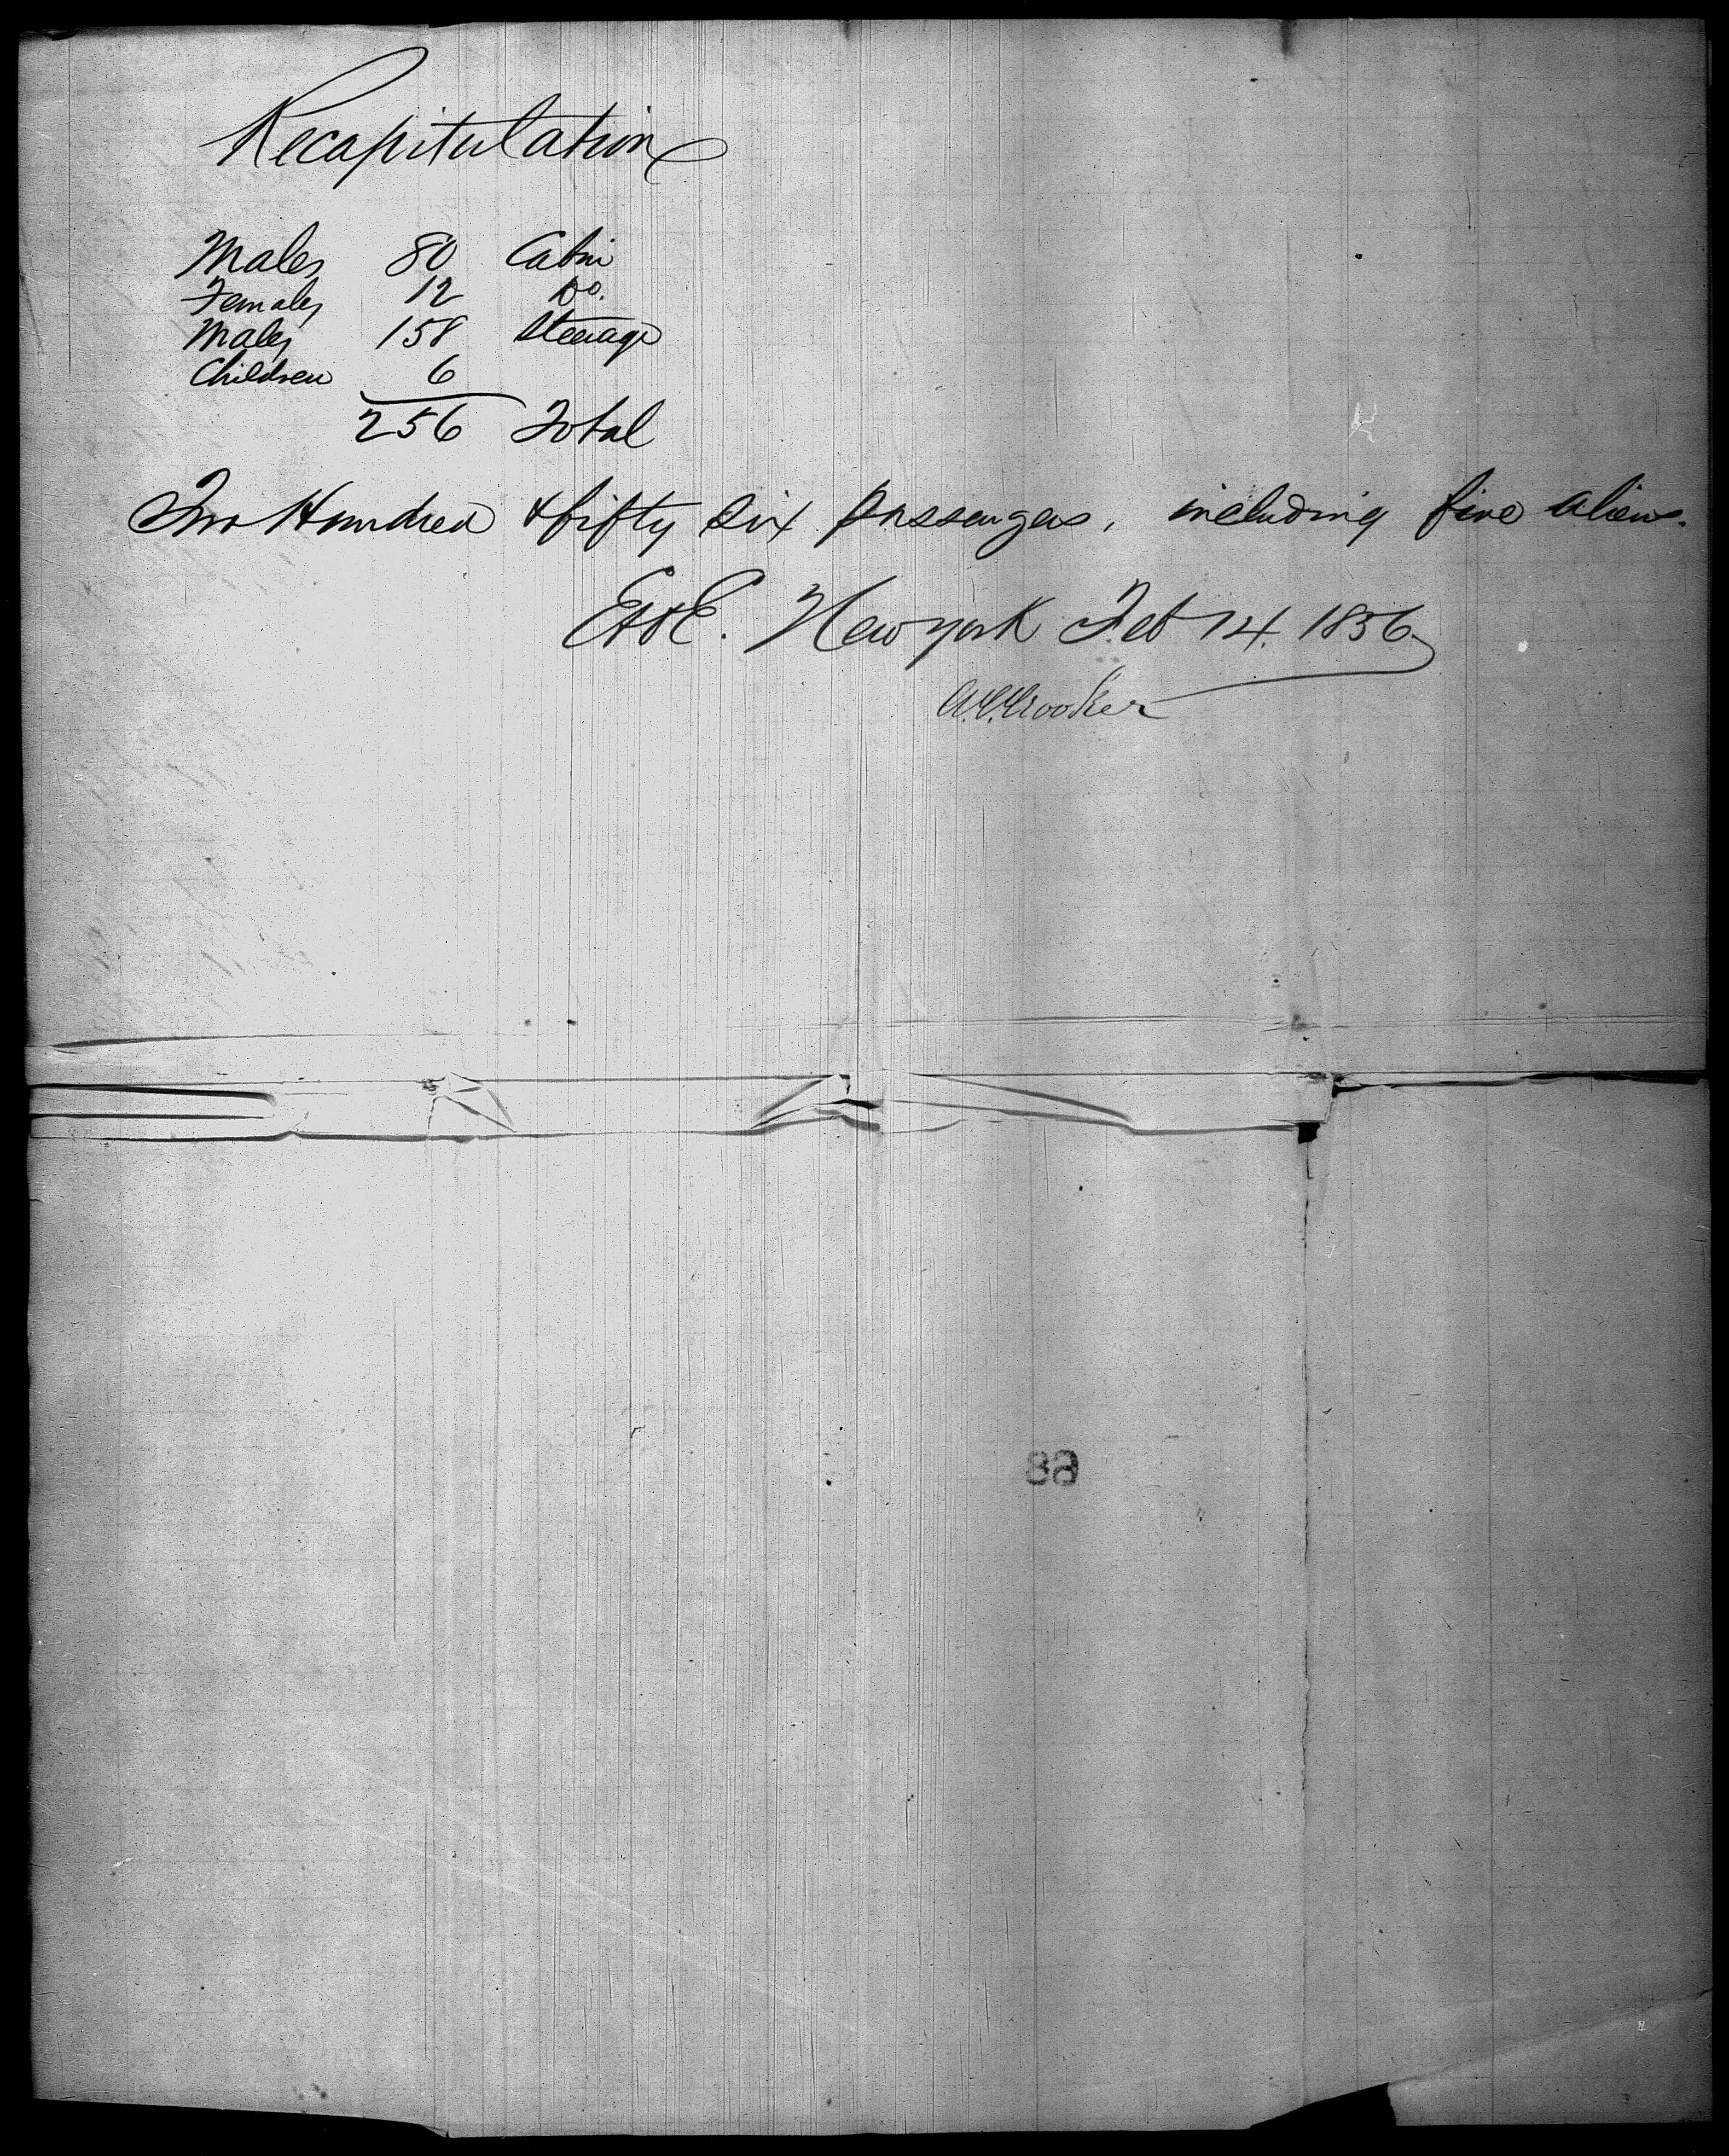 Recapitulation
Males 80 Cabin
Females 12 Do.
Males 158 Steerage
Children 6
256 Total
Two Hundred & fifty six passengers, including five aliens.
E&OE. New york Feb 14. 1856
Crooker
89